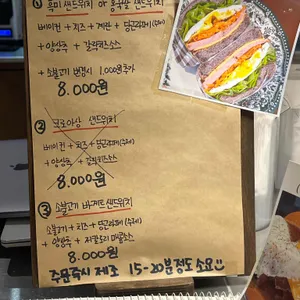 ① 흑미 샌드위치 or 통곡살 샌드위치
베이컨 + 치즈 + 계란 + 당근라페(수제)
+ 양상추 + 갈릭치즈소스
+ 소불고기 변경시 1,000원 추가
8.000원
② 크로아상 샌드위치
베이컨 + 치즈 + 당근라페(수제)
양상추 + 갈릭치즈소스
8.000원
③ 소불고기 바게트샌드위치
소불고기 + 치즈 + 당근라페(수제)
+ 양상추 +
8.000원
주문즉시 제조 15-20분정도 소요